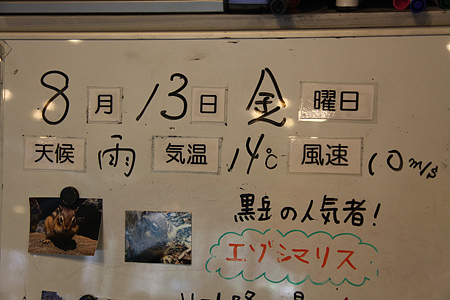 8月13日金曜日
天候 雨 気温 14℃ 風速 10m/s
黒岳の人気者!
エゾシマリス